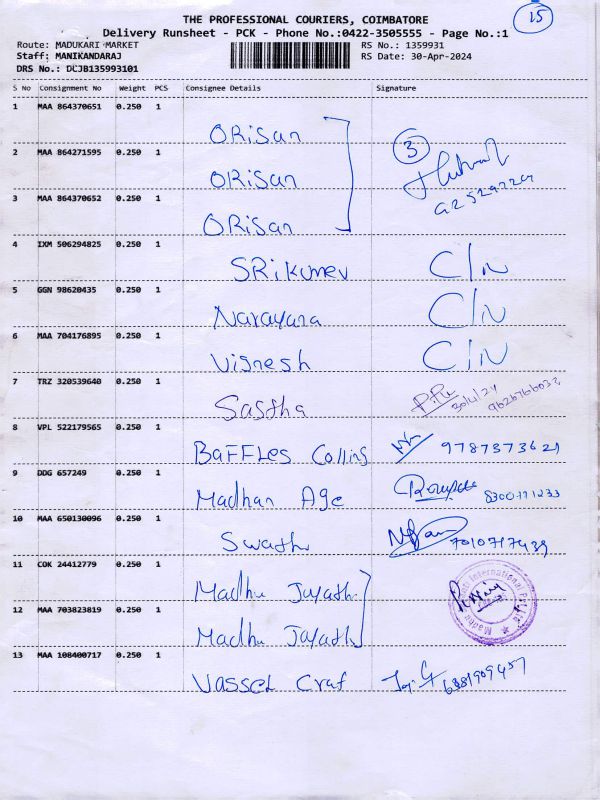 15
THE PROFESSIONAL COURIERS, COIMBATORE
Delivery Runsheet - PCK - Phone No.:0422-3505555 - Page No.:1
Route: MADUKARI MARKET RS No.: 1359931
Staff: MANIKANDARAJ RS Date: 30-Apr-2024
DRS No.: DCJB135993101
S No Consignment No Weight PCS Consignee Details Signature
1 MAA 864370651 0.250 1 ORiSan
2 MAA 864271595 0.250 1 ORiSan 3
3 MAA 864370652 0.250 1 ORiSan
4 IXM 506294825 0.250 1 SRikumev C/N
5 GGN 98620435 0.250 1 Narayana C/N
6 MAA 704176895 0.250 1 Vignesh C/N
7 TRZ 320539640 0.250 1 Sastha 30/4/24 9626766032
8 VPL 522179565 0.250 1 BaFFLes Colling 9787373621
9 DDG 657249 0.250 1 Madhan Age 8300171233
10 MAA 650130096 0.250 1 Swathi 7010717439
11 COK 24412779 0.250 1 Madhu Jayath
12 MAA 703823819 0.250 1 Madhu Jayath
13 MAA 108400717 0.250 1 Vassel Craf 6381909457